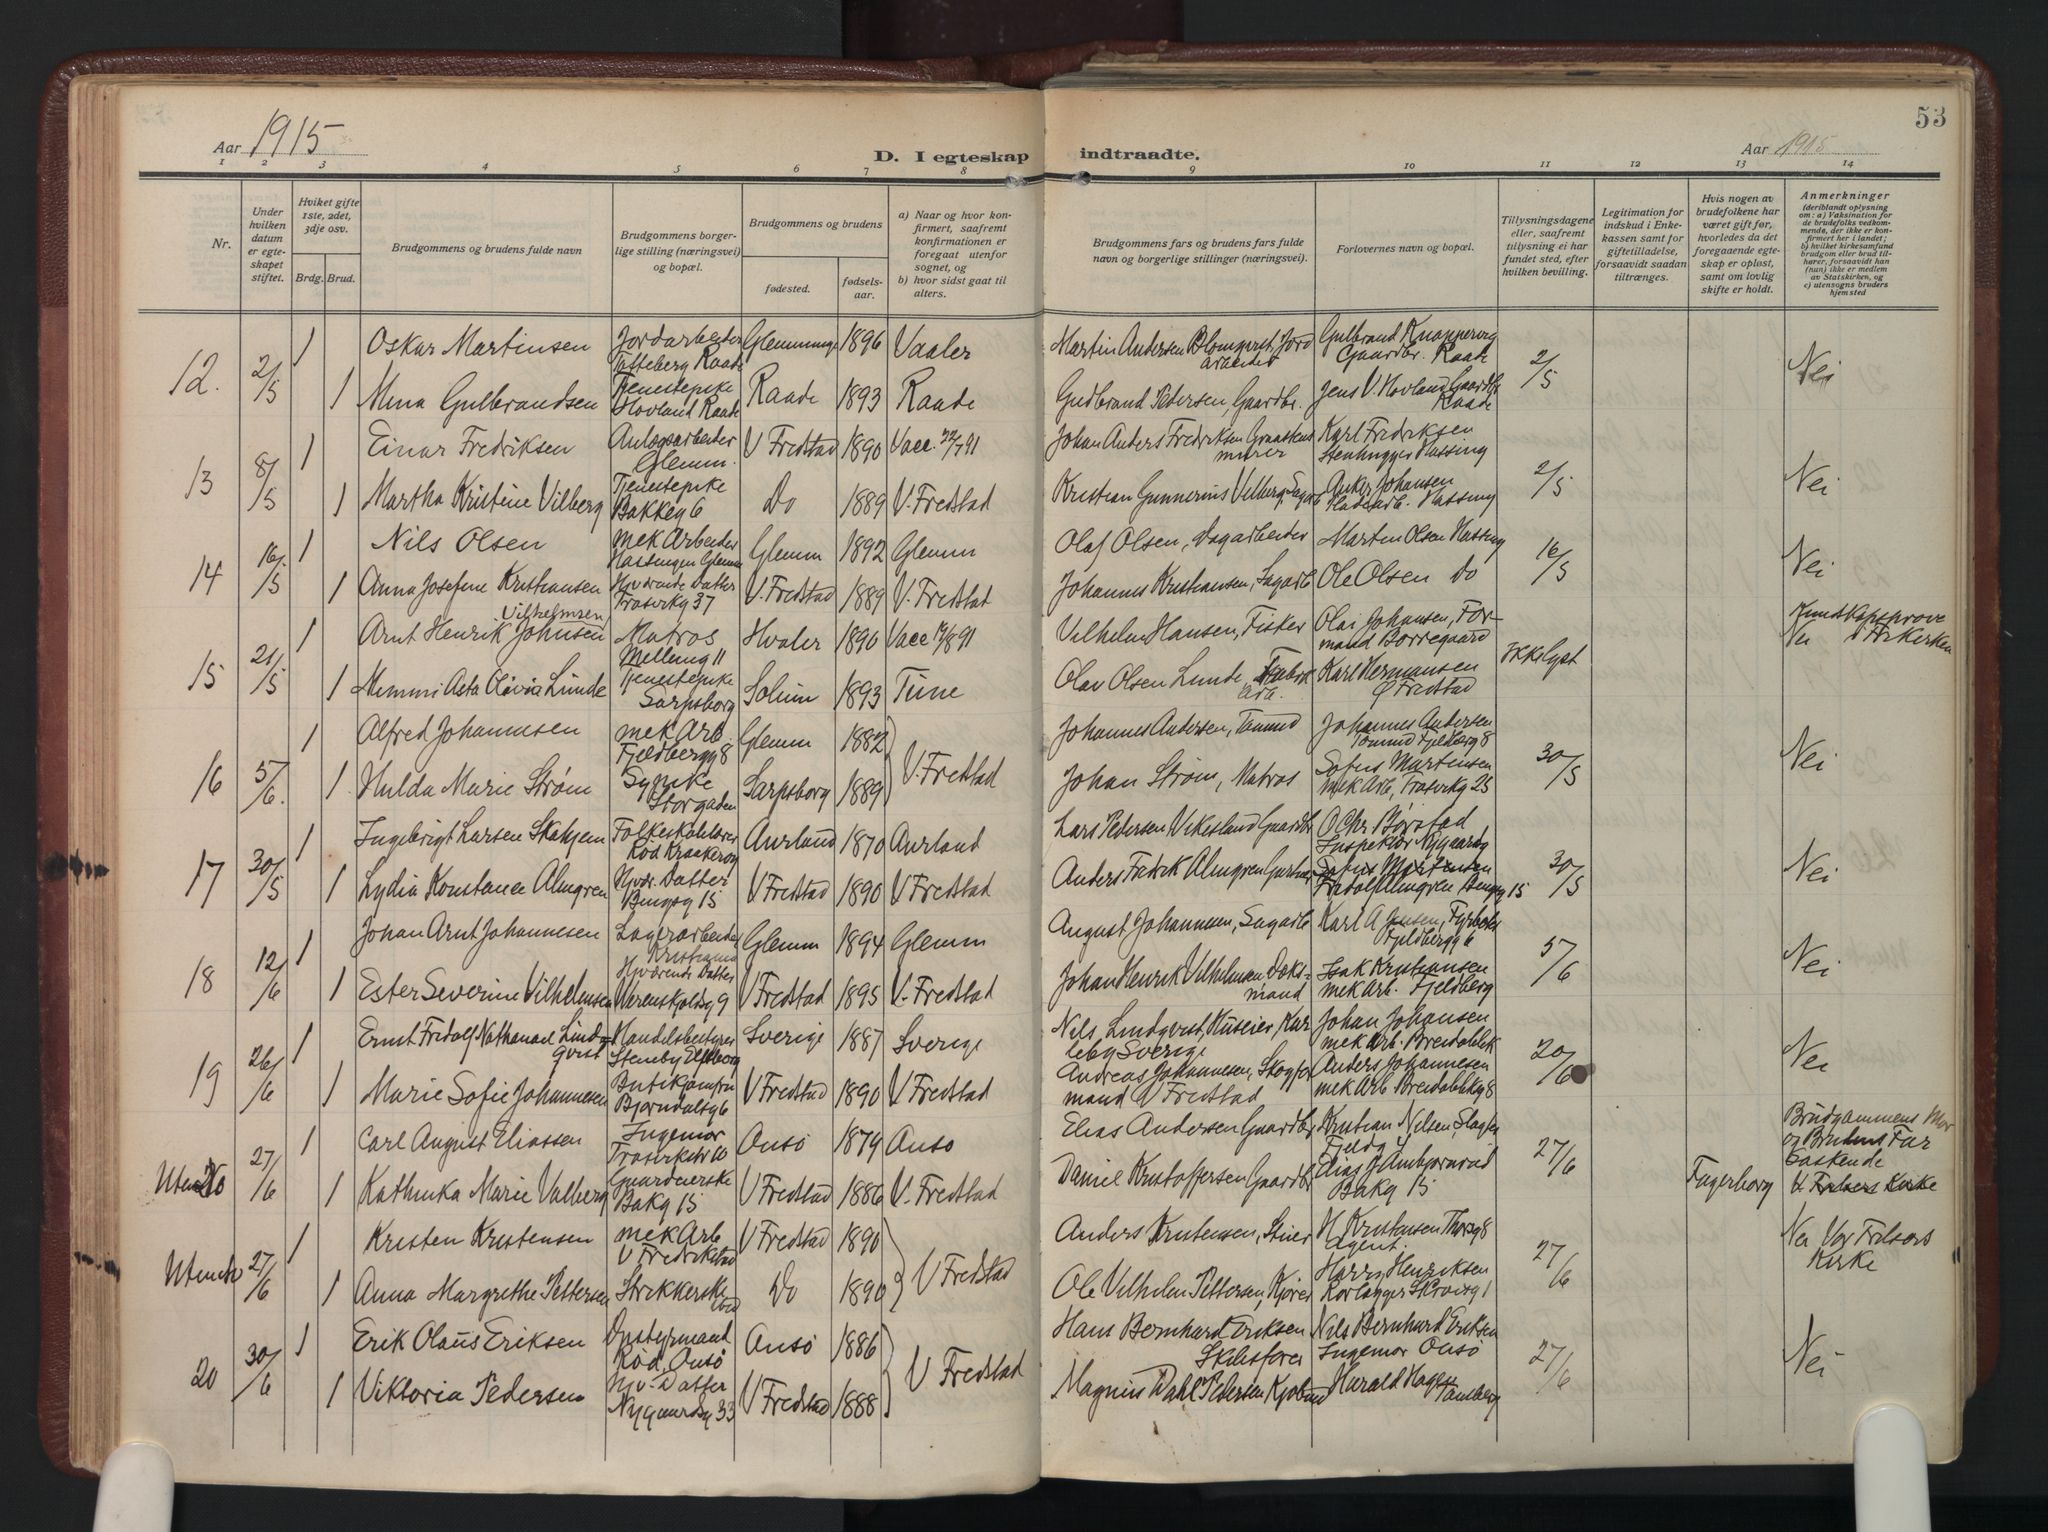 53
Aar 1915
D. I egteskap indtraadte.
Aar 1915
1 2 3 4 5 6 7 8 9 10 11 12 13 14
Nr.
Under hvilken datum er egteskapet stiftet.
Hvilket gifte 1ste, 2det, 3dje osv.
Brdg. Brud.
Brudgommens og brudens fulde navn
Brudgommens borgerlige stilling (næringsvei) og bopæl.
Brudgommens og brudens
fødested.
fødselsaar.
a) Naar og hvor konfirmert, saafremt konfirmationen er foregaat utenfor sognet, og
b) hvor sidst gaat til alters.
Brudgommens fars og brudens fars fulde navn og borgerlige stillinger (næringsvei).
Forlovernes navn og bopæl.
Tillysningsdagene eller, saafremt tillysning ei har fundet sted, efter hvilken bevilling.
Legitimation for indskud i Enkekassen samt for giftetilladelse, forsaavidt saadan tiltrænges.
Hvis nogen av brudefolkene har været gift før, hvorledes da det foregaaende egteskap er opløst, samt om lovlig skifte er holdt.
Anmerkninger
(deriblandt oplysning om: a) Vaksination for de brudefolks vedkommende, der ikke er konfirmert her i landet; b) hvilket kirkesamfund brudgom eller brud tilhører, forsaavidt han (hun) ikke er medlem av Statskirken, og c) utensogns bruders hjemsted
12. 2/5 1 Oskar Martinsen Jordarbeider Tatteberg Raade Glemminge 1896 Vaaler Martin Andersen Blomqvist, Jordarbeider Gulbrand Knappervog Gaardbr. Raade 2/5 Nei
1 Mina Gulbrandsen Tjenestepike Hovland Raade Raade 1893 Raade Gudbrand Pedersen, Gaardbr. Jens V. Hovland Gaardbr Raade
13 8/5 1 Einar Fredriksen Anlægsarbeider Glemm. V Fredstad 1890 Vacc. 22/7 91 Johan Anders Fredriksen Graastensmurer Karl Fredriksen Stenhugger Hassing 2/5 Nei
1 Martha Kristine Vilberg Tjenestepike Bakkeg 6 Do 1889 V. Fredstad Kristian Gunnerius Vilberg, Sagarb Anker Johansen Hassing
14 16/5 1 Nils Olsen mek Arbeider Hassingen Glemm Glemm 1892 Glemm Olaf Olsen, Dagarbeider Martin Olsen Hassing 16/5 Nei
1 Anna Josefine Kristiansen Hjværende Datter Trosvikg 37 V. Fredstad 1889 V. Fredstad Johannes Kristiansen, Sagarb Ole Olsen Do
15 21/5 1 Arnt Henrik Vilhelmsen Johnsen Matros Mellemg 11 Hvaler 1890 Vacc 19/8 91 Vilhelm Hansen, Fisker Olai Johansen, Formand Borregaard Ikke lyst Nei Kundskapsprøve
1 Mimmi Asta Olivia Lunde Tjenestepike Sarpsborg Solum 1893 Tune Olav Olsen Lunde, Fabrik Arb. Karl Hermansen Ø Fredstad
16 5/6. 1 Alfred Johannesen mek Arb. Fjeldbergg 8 Glemm 1882 V. Fredstad Johannes Andersen, Tømmd Johannes Andersen Tømmd Fjeldbergg 8 30/5 Nei
1 Hulda Marie Strøm Sypike Storgaden Sarpsborg 1889 Johan Strøm, Matros Sofus Martinsen mek Arb, Trosvikg 25
17 30/5 1 Ingebrigt Larsen Skahjem Folkeskolelærer Rød Kraakerøy Aurland 1870 Aurland Lars Pedersen Vikesland Gaardbr O Chr Børstad Inspektør Nygaardsg 30/5 Nei
1 Lydia Konstance Almgren Hjvær. Datter Bingsg 15 V Fredstad 1890 V Fredstad Anders Fredrik Almgren Sofus Martinsen Fridolf Almgren 15
18 12/6 1 Johan Arnt Johannesen Lagerarbeider Kristiania Glemm 1894 Glemm August Johannesen, Sagarb Karl A Jensen, Fyrbøter Fjeldbergg 6 5/6 Nei
1 Ester Severine Vilhelmsen Hjværende Datter Werenskjoldsg 9 V Fredstad 1895 V. Fredstad Johan Henrik Vilhelmsen Doksmand Isak Kristiansen mek Arb. Fjeldberg
19 26/6 1 Ernst Fridolf Nathanael Lindqvist Handelsbestyrer Sverige 1887 Sverige Nils Lindqvist, Karleby Sverige Johan Johansen mek Arb. Breidablik 20/6 Nei
1 Marie Sofie Johannesen Butikjomfru Bjørndalsg 6 V Fredstad 1890 V Fredstad Andreas Johannesen, Skogformand V Fredstad Anders Johannesen mek Arb. Breidablikg 8
Utenbs 27/6 1 Carl August Eliassen Ingeniør Trosvikstr 10 Onsø 1879 Onsø Elias Andersen Gaardbr Kristian Nilsen, Slagter Fjeldg 4 27/6 Brudgommens Mor og Brudens Far
1 Kathinka Marie Valberg Bakg 15 V Fredstad 1886 V. Fredstad Daniel Kristoffersen Gaardbr Elias J Ambjørnrød Bakg 15 Fagerborg V. Frelsers Kirke
Utenbs 27/6 1 Kristen Kristensen mek Arb V Fredrikstad V Fredstad 1890 V Fredstad Anders Kristensen, H Kristensen Thorsg 8 agent. 27/6 Nei Vor Frelsers Kirke
1 Anna Margrethe Pettersen Strikkerske Do 1890 Ole Vilhelm Pettersen, Kjører Harry Henriksen
20 30/6 1 Erik Olaus Eriksen Onsø 1886 V Fredstad Hans Bernhard Eriksen Skibsfører Nils Bernhard Eriksen Ingeniør Onsø 27/6 Nei
1 Viktoria Pedersen Hjv. Datter Nygaardsg 33 V Fredstad 1888 Magnus Dahl Pedersen Harald Hagen Tønsberg